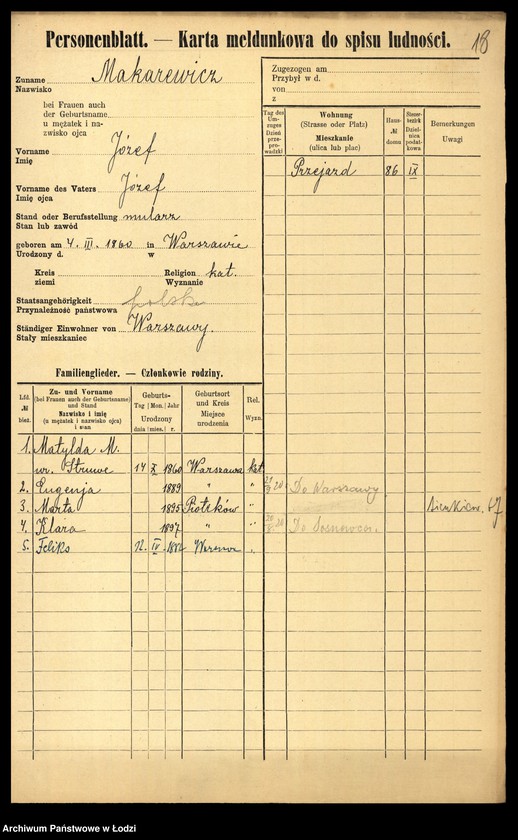 Personenblatt. — Karta meldunkowa do spisu ludności.
18
Zuname Makarewicz
Nazwisko
bei Frauen auch
der Geburtsname
u mężatek i na-
zwisko ojca
Vorname Józef
Imię
Vorname des Vaters Józef
Imię ojca
Stand oder Berufsstellung mularz
Stan lub zawód
geboren am 4. III. 1860 in Warszawie
Urodzony d. w
Kreis Religion kat.
ziemi Wyznanie
Staatsangehörigkeit polska
Przynależność państwowa
Ständiger Einwohner von Warszawy.
Stały mieszkaniec
Zugezogen am
Przybył w d.
von
z
Tag des Um-
zuges
Dzień
prze-
prowadzki
Wohnung
(Strasse oder Platz)
Mieszkanie
(ulica lub plac)
Haus-
№
domu
Steuer-
bezirk
Dziel-
nica
podat-
kowa
Bemerkungen
Uwagi
Przejazd 86 IX
Familienglieder. — Członkowie rodziny.
Lfd.
№
bież.
Zu- und Vorname
(bei Frauen auch der Geburtsname)
und Stand
Nazwisko i imię
(u mężatek i nazwisko ojca)
i stan
Geburts-
Tag Mon. Jahr
Urodzony
dnia mies. r.
Geburtsort
und Kreis
Miejsce
urodzenia
Rel.
Wyzn.
1. Matylda M.
ur. Struwe 14 X 1860 Warszawa kat.
2. Eugenja 1889 " " Do Warszawy
3. Marta 1895 Piotrków "
4. Klara 1897 " " Do Sosnowca.
5. Feliks 12. IV "
67
Archiwum Państwowe w Łodzi